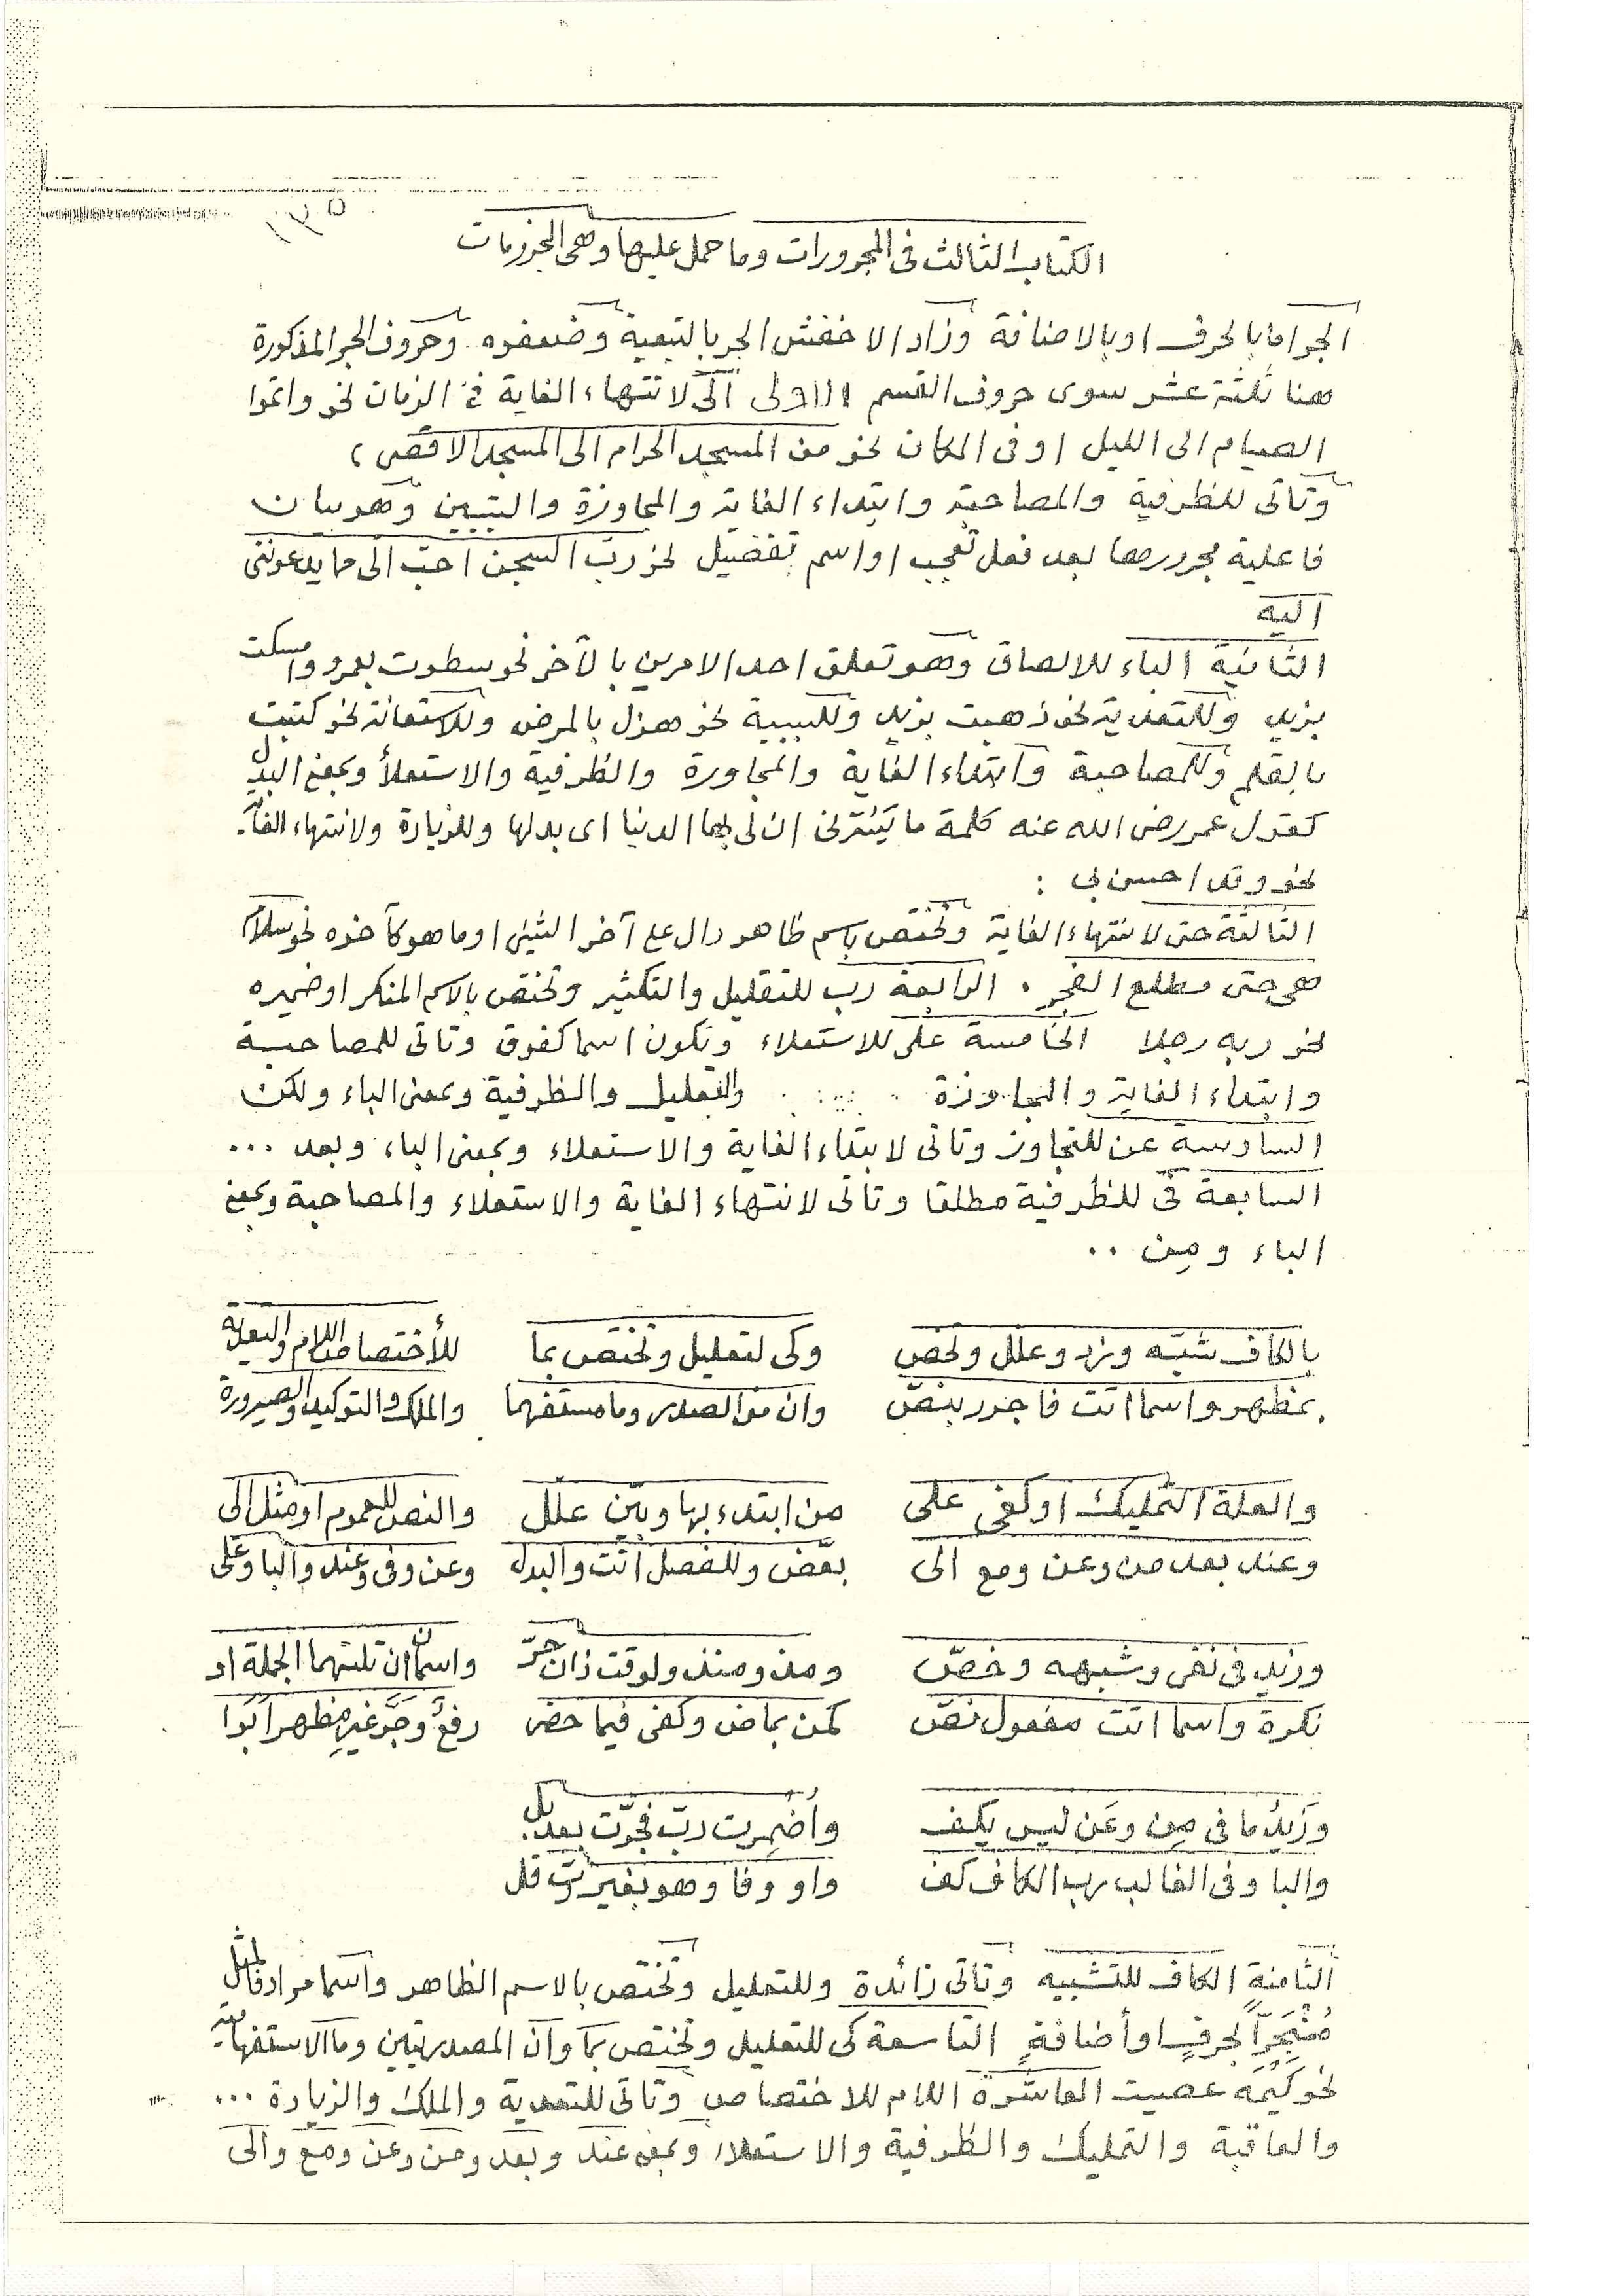 ١٣٥
الكتاب الثالث فى المجرورات وما حمل عليها وهى المجزومات
الجر اما بالحرف او بالاضافة وزاد الاخفش الجر بالتبعية وضعفوه وحروف الجر المذكورة
هنا ثلثة عشر سوى حروف القسم الاولى الى لانتهاء الغاية فى الزمان نحو واتموا
الصيام الى الليل او فى المكان نحو من المسجد الحرام الى المسجد الاقصى ،
وتاتى للظرفية والمصاحبة وابتداء الغاية والمجاوزة والتبيين وهو بيان
فاعلية مجرورها بعد فعل تعجب او اسم تفضيل نحو رب السجن احب الى مما يدعوننى
اليه
الثانية الباء للالصاق وهو تعلق احد الامرين بالآخر نحو سطوت بعمرو وامسكت
بزيد وللتعدية نحو ذهبت بزيد وللسببية نحو هزل بالمرض وللاستعانة نحو كتبت
بالقلم وللمصاحبة وابتداء الغاية والمجاوزة والظرفية والاستعلأ وبمعنى البدل
كقول عمر رضى الله عنه كلمة ما يَسُرّنى ان لى بها الدنيا اى بدلها وللزيادة ولانتهاء الغاية
نحو وقد احسن بى :
الثالثة حتى لانتهاء الغاية وتختص باسم ظاهر دال على آخر الشئ او ما هو كآخره نحو سلام
هى حتى مطلع الفجر . الرابعة رب للتقليل والتكثير وتختص بالاسم المنكر او ضميره
نحو ربه رجلا الخامسة على للاستعلاء وتكون اسما كفوق وتاتى للمصاحبة
وابتداء الغاية والمجاوزة والتعليل والظرفية وبمعنى الباء ولكن
السادسة عن للتجاوز وتاتى لابتداء الغاية والاستعلاء وبمعنى الباء وبعد ...
السابعة فى للظرفية مطلقا وتاتى لانتهاء الغاية والاستعلاء والمصاحبة وبمعنى
الباء ومِن ..
بالكاف شبّه وزد وعلل وتخص وكى لتعليل وتختص بما للأختصاص اللام والتعدية
بمظهر واسما اتت فاجرر بنصّ وان من الصدر وما مستفهما والملك والتوكيد والصيرورة
والعلة التمليك او كفى على من ابتدء بها وبيّن علّل والنص للعموم او مثل الى
وعند بعد من وعن ومع الى بعّض وللفصل اتت والبدل وعن وفى وعند والبا وعلى
وزيد فى نفى وشبهه وخصّ ومذ ومنذ ولوقت ذان جرّ واسمان ان تلتهما الجملة او
نكرة واسما اتت مفعول نصّ كمن بماض وكفى فيما حضر رفعٌ وجرَّ غيرِ مظهر ابَوا
وزَيدُ ما فى مِن وعَن ليس يكف واُضمِرت ربّ فجرّت بعد بل
والبا وفى الغالب رب الكاف كف واو وفا وهو بغير رُبّ قل
الثامنة الكاف للتشبيه وتاتى زائدة وللتعليل وتختص بالاسم الظاهر واسما مرادفا لمثل
مُنْجَرّاً بحرفٍ او أضافةٍ التاسعة كى للتعليل وتختص بما وان المصدريتين وما الاستفهامية
نحو كَيْمَه عصيت العاشرة اللام للاختصاص وتاتى للتعدية والملك والزيادة ...
والعاقبة والتمليك والظرفية والاستعلاء وبمعنى عند وبعد ومن وعن ومع والى